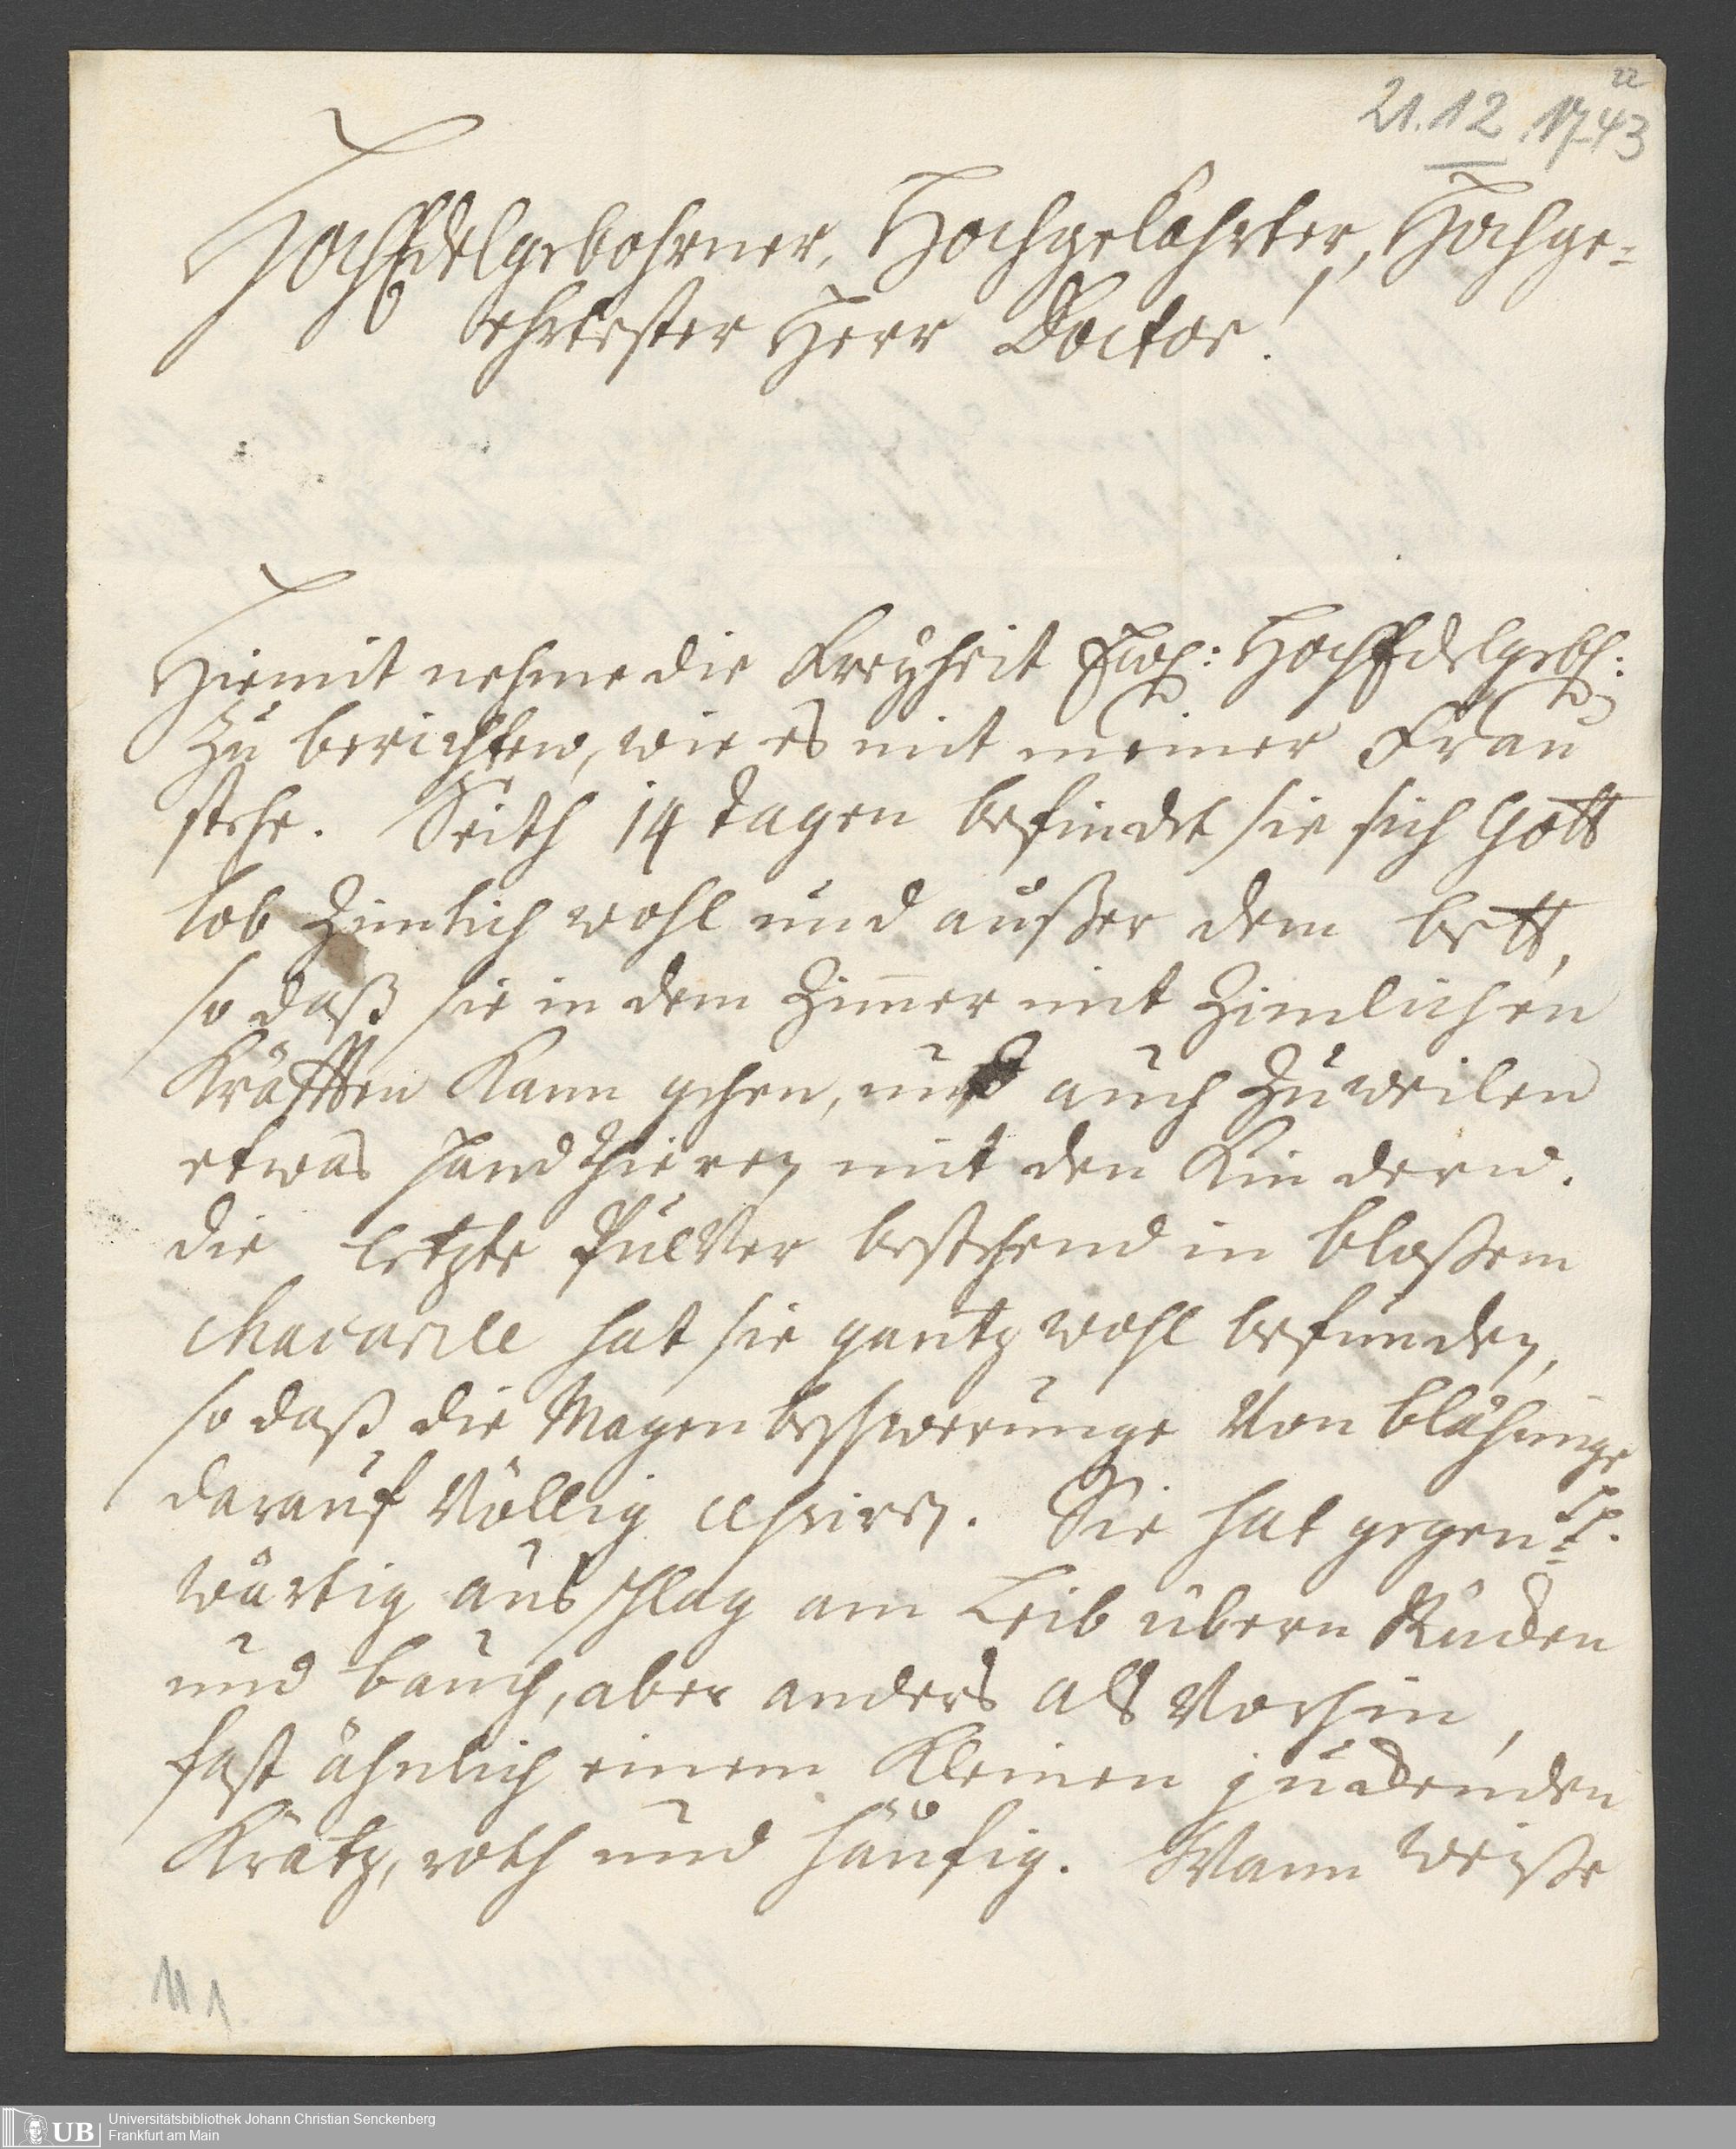 22
21.12.1743
HochEdelgebohrner, Hochgelahrter, Hochge-
ehrtester Herr Doctor!
Hiemit nehme die Freyheit Ew: HochEdelgebh:
zu berichten, wie es mit meiner Frau
stehe. Seith 14 tagen befindet sie sich Gott
lob zimlich wohl und außer dem bett,
so daß sie in dem Zimer mit zimlichen
Kräfften kann gehen, und auch zuweilen
etwas handthieren mit den Kindern.
die letzte Pulver bestehend in bloßem
hat sie gantz wohl befunden,
so daß die Magenbeschwerunge von blähunge
darauf völlig. Sie hat gegen-
wärtig ausschlag am Leib übern Rucken
und bauch, aber anders als vorhin,
fast ähnlich einem kleinen juckenden
Krätz, roth und häufig. Wann weiße
11 1
UB Universitätsbibliothek Johann Christian Senckenberg
Frankfurt am Main